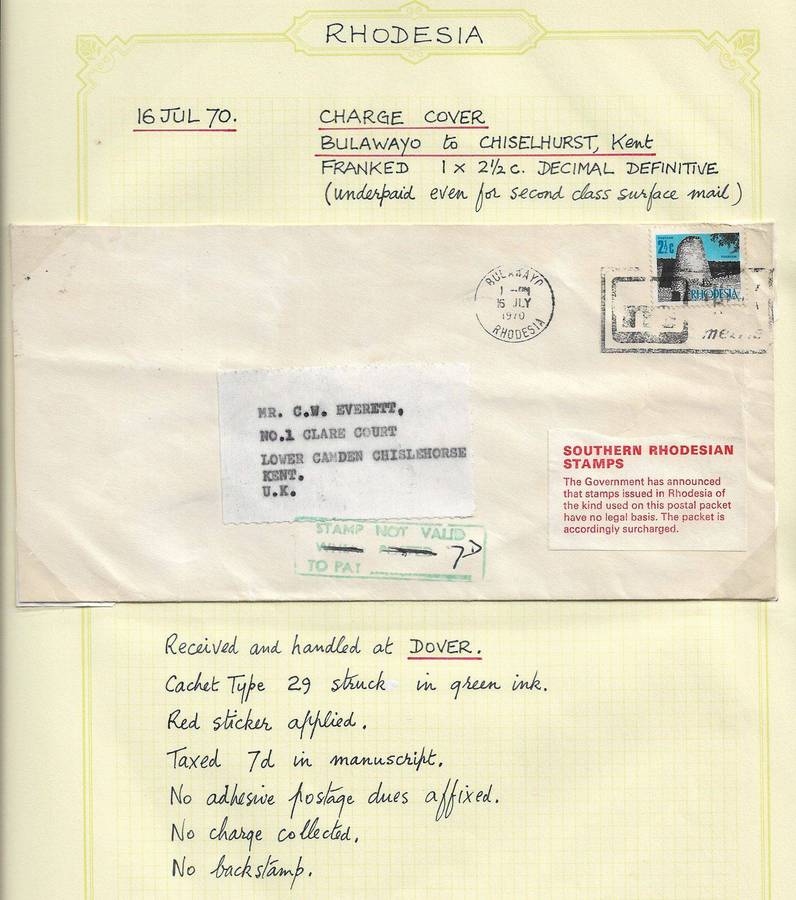 RHODESIA
16 JUL 70.
CHARGE COVER
BULAWAYO to CHISELHURST, Kent
FRANKED 1 x 2½ c. DECIMAL DEFINITIVE
(underpaid even for second class surface mail)
2½c
RHODESIA
BULAWAYO
1 - PM
16 JLY
1970
RHODESIA
MR. C.W. EVERETT,
NO.1 CLARE COURT
LOWER CAMDEN CHISLEHORSE
KENT.
U.K.
SOUTHERN RHODESIAN
STAMPS
The Government has announced
that stamps issued in Rhodesia of
the kind used on this postal packet
have no legal basis. The packet is
accordingly surcharged.
STAMP NOT VALID
7D
TO PAY
Received and handled at DOVER.
Cachet Type 29 struck in green ink.
Red sticker applied.
Taxed 7d in manuscript.
No adhesive postage dues affixed.
No charge collected.
No backstamp.